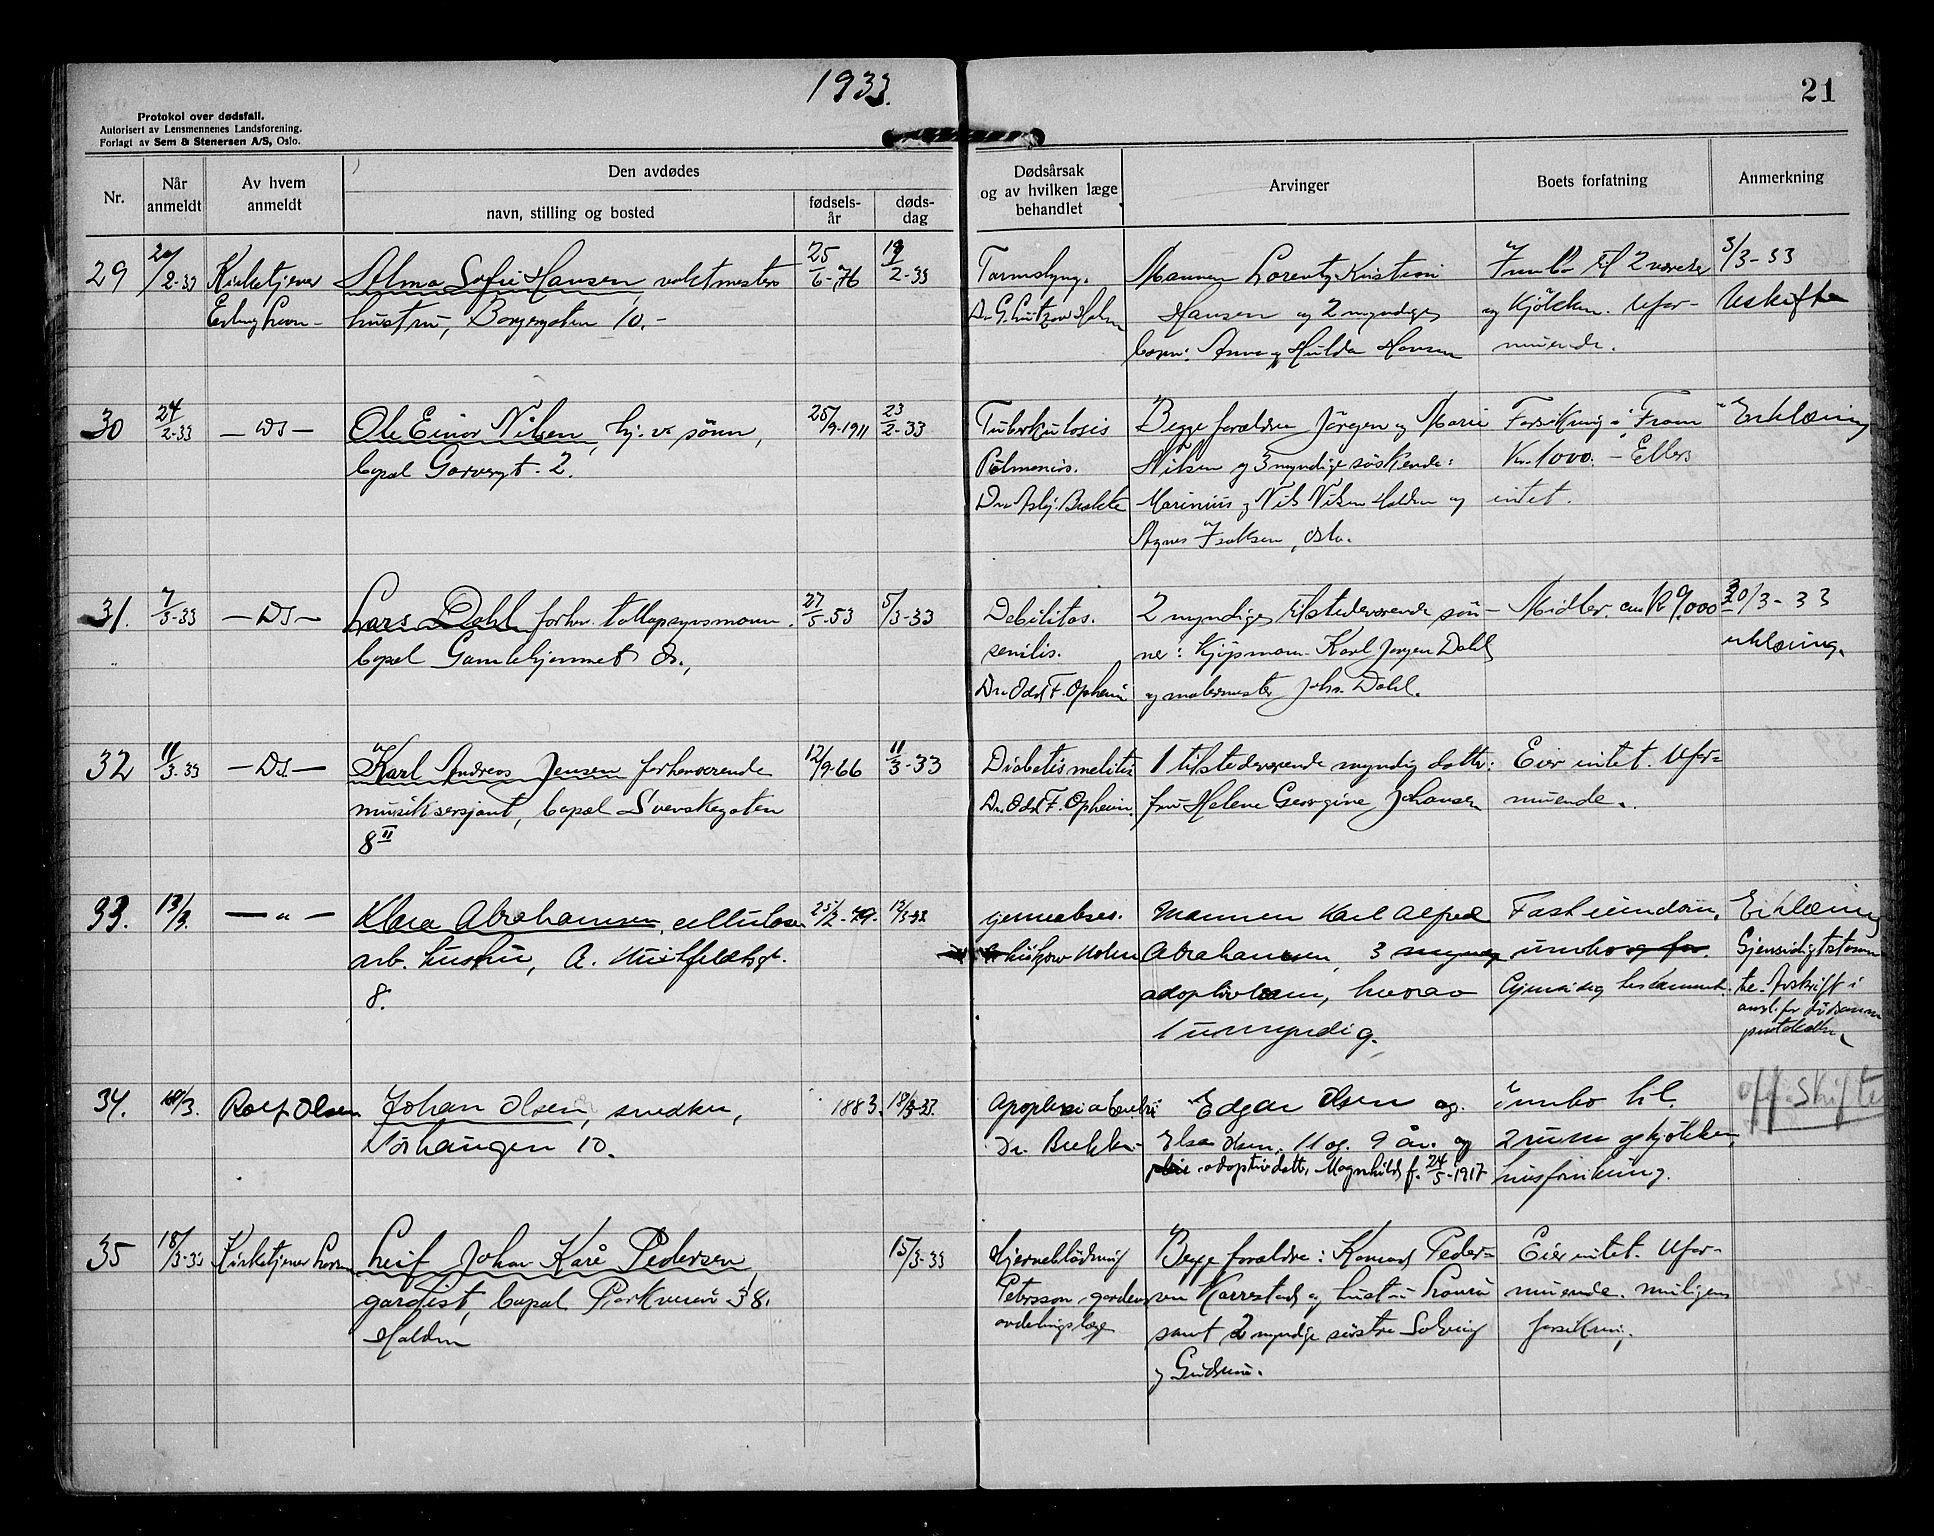 1933.
21
Protokol over dødsfall.
Autorisert av Lensmennenes Landsforening.
Forlagt av Sem & Stenersen A/S, Oslo.
Nr.
Når anmeldt
Av hvem anmeldt
Den avdødes
navn, stilling og bosted
fødsels-år
døds-dag
Dødsårsak og av hvilken læge behandlet
Arvinger
Boets forfatning
Anmerkning
29 2-33 Kirketjener Alma Sofie Hansen, vaktmesters 25/6-76 2-33 Tarmslyng. Mannen Lorentz Kristian Innbo til 2 værelser 3/3-33
hustru, Borgergaten 10.- Dr. G. Lützow Holm Hansen og 2 myndige og kjøkken. Ufor- Uskifte
barn: Anna og Hulda Hansen muende.
30 24/2-33 - Ds - Ole Einar Nilsen, hj.v. sønn, 25/9-1911 23/2-33 Tuberkulosis Begge forældre Jørgen og Marie Forsikring i "Fram" Erklæring
bopæl Garverigt. 2. Pulmonis. Nilsen og 3 myndige søskende: Kr. 1000. - Ellers
Dr. Asbj. Brekke Marinius og Nils Nilsen Halden og intet.
Agnes Isaksen, Oslo.
31. 7/3-33 - Ds - Lars Dahl forhv. tollopsynsmann. 27/5-53 5/3-33 Debilitas 2 myndige tilstedeværende søn- Midler ca Kr 9.000 20/3-33
bopæl Gamlehjemmet Os., senilis. ner: Kjøpmann Karl Jørgen Dahl erklæring.
Dr. Odd F. Opheim og malermester Johs. Dahl.
32 11/3-33 - Ds. - Karl Andreas Jensen forhenværende 12/9-66 11/3-33 Diabetis melitis 1 tilstedeværende myndig datter: Eier intet. Ufor-
musiksersjant, bopæl Svenskegaten Dr. Odd F. Opheim. fru Helene Georgine Johansen muende.
8 II
33. 13/3. - " - Klara Abrahamsen, cellulose 12/3-33 Mannen Karl Alfred Fast eiendom, Erklæring
arb. hustru, A. Huitfeldtsgt. Lützow Holm Abrahamsen, 3 mynd innbo og for. Gjensidig testam
8. adoptivbarn, hvorav Gjensidig testament. te. Avskrift i
1 umyndig. protokollen.
34. 18/3. Rolf Olsen Johan Olsen, snedker, 1883. 18/3-33. Edgar Olsen og innbo til off. skifte
Norhaugen 10. Dr. Brekke- Elsa Olsen, 11 og 9 år. og 2 rum og kjøkken,
adoptivdatt. Magnhild f. 24/5-1917 husforsikring.
35 18/3-33 Kirketjener Leif Johan Kåre Pedersen 15/3-33 Hjerneblødning Begge forældre: Konrad Peder- Eier intet. Ufor-
gardist, bopæl Parkveien 38. Peterson gardens sen Karrestad og hustru Laura muende. muligens
Halden avdelingslæge samt 2 myndige søstre Solveig forsikring.
og Gudrun.